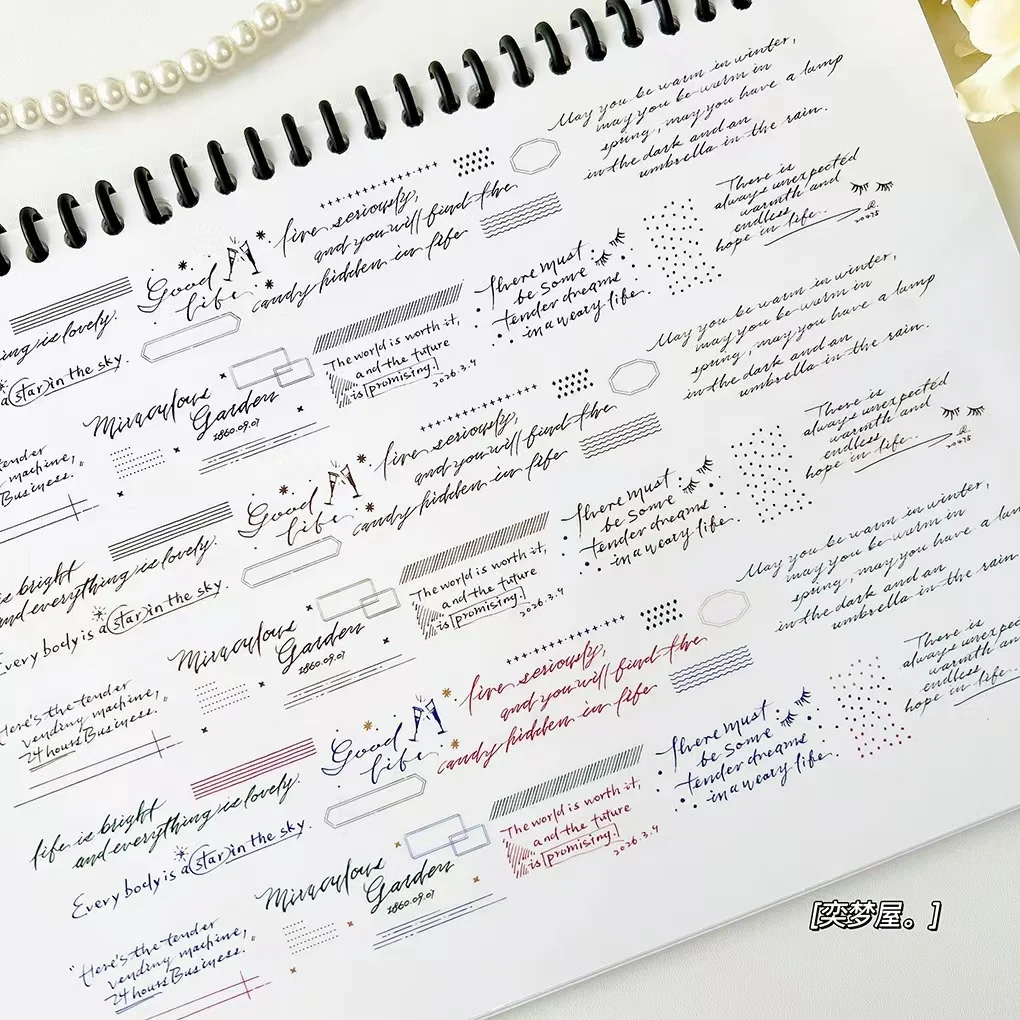 May you be warm in winter,
may you be warm in
spring, may you have a lamp
in the dark and an
umbrella in the rain.
There is
always unexpected
warmth and
endless
hope in life..
live seriously,
and you will find the
candy hidden in life
Good
life
There must
be Some
tender dreams
in a weary life.
ing is lovely.
a star in the sky.
The world is worth it,
and the future
is promising.
2026.3.9
Miraculous
Garden
1860.09.07
tender
machine,"
Business.
May you be warm in winter,
may you be warm in
spring, may you have a lamp
in the dark and an
umbrella in the rain.
There is
always unexpected
warmth and
endless
hope in life..
live seriously,
and you will find the
candy hidden in life
Good
life
There must
be Some
tender dreams
in a weary life.
is bright
and everything is lovely.
Every body is a star in the sky.
The world is worth it,
and the future
is promising.
2026.3.9
Miraculous
Garden
1860.09.07
Here's the tender
vending machine,"
24 hours Business.
May you be warm in winter,
may you be warm in
spring, may you have a
in the dark and an
umbrella in the rain
There is
always
warmth and
endless
hope in life..
live seriously,
and you will find the
candy hidden in life
Good
life
There must
be Some
tender dreams
in a weary life.
life is bright
and everything is lovely.
Every body is a star in the sky.
The world is worth it,
and the future
is promising.
2026.3.9
Miraculous
Garden
1860.09.07
"Here's the tender
vending machine,"
24 hours Business.
[奕梦屋。]